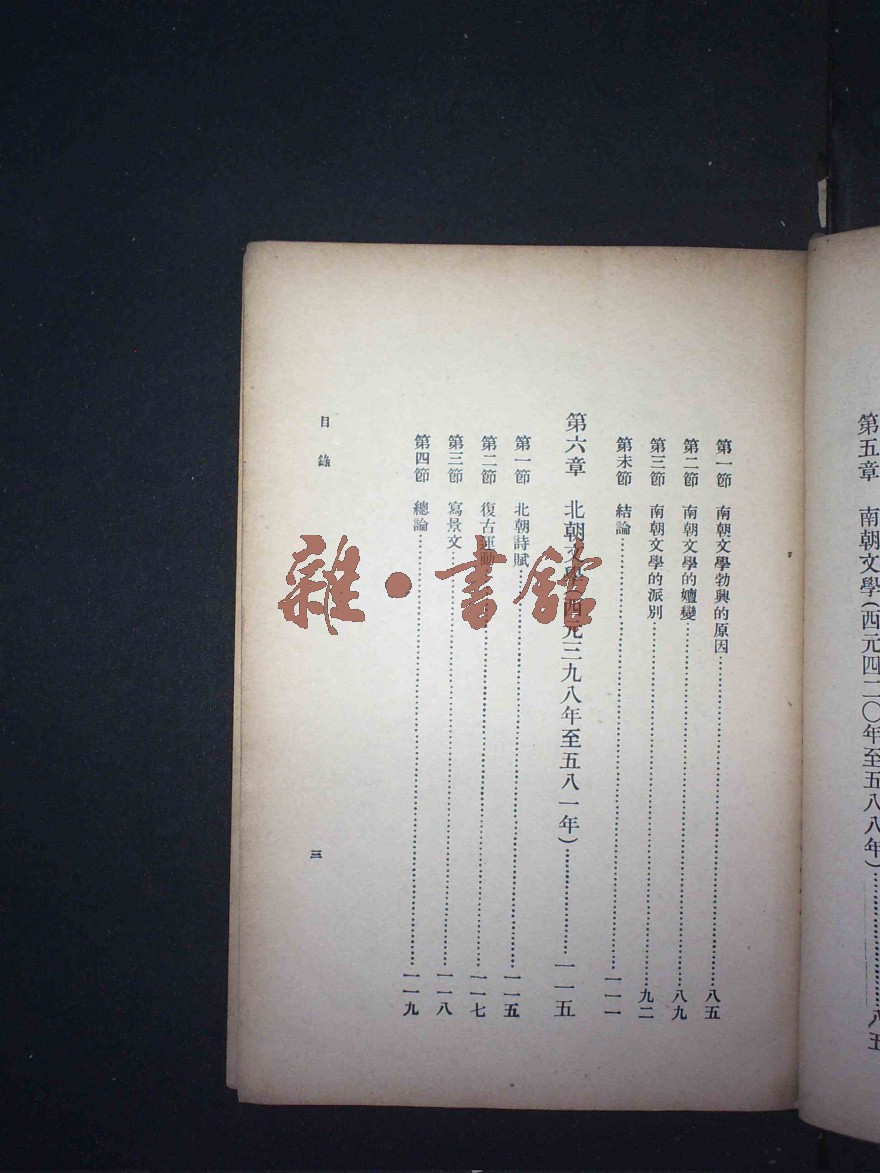 第五章　南朝文學(西元四二〇年至五八八年)……八五
第一節　南朝文學勃興的原因……八五
第二節　南朝文學的嬗變……八九
第三節　南朝文學的派別……九二
第末節　結論……一一一
第六章　北朝文學(西元三九八年至五八一年)……一一五
第一節　北朝詩賦……一一五
第二節　復古運動……一一七
第三節　寫景文……一一八
第四節　總論……一一九
目錄
三
雜·書館